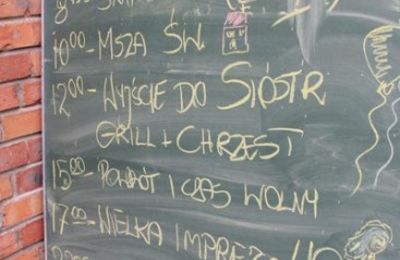 10:00 - MSZA ŚW.
12:00 - WYJŚCIE DO SIÓSTR
GRILL + CHRZEST
15:00 - POWRÓT I CZAS WOLNY
17:00 - WIELKA IMPREZA